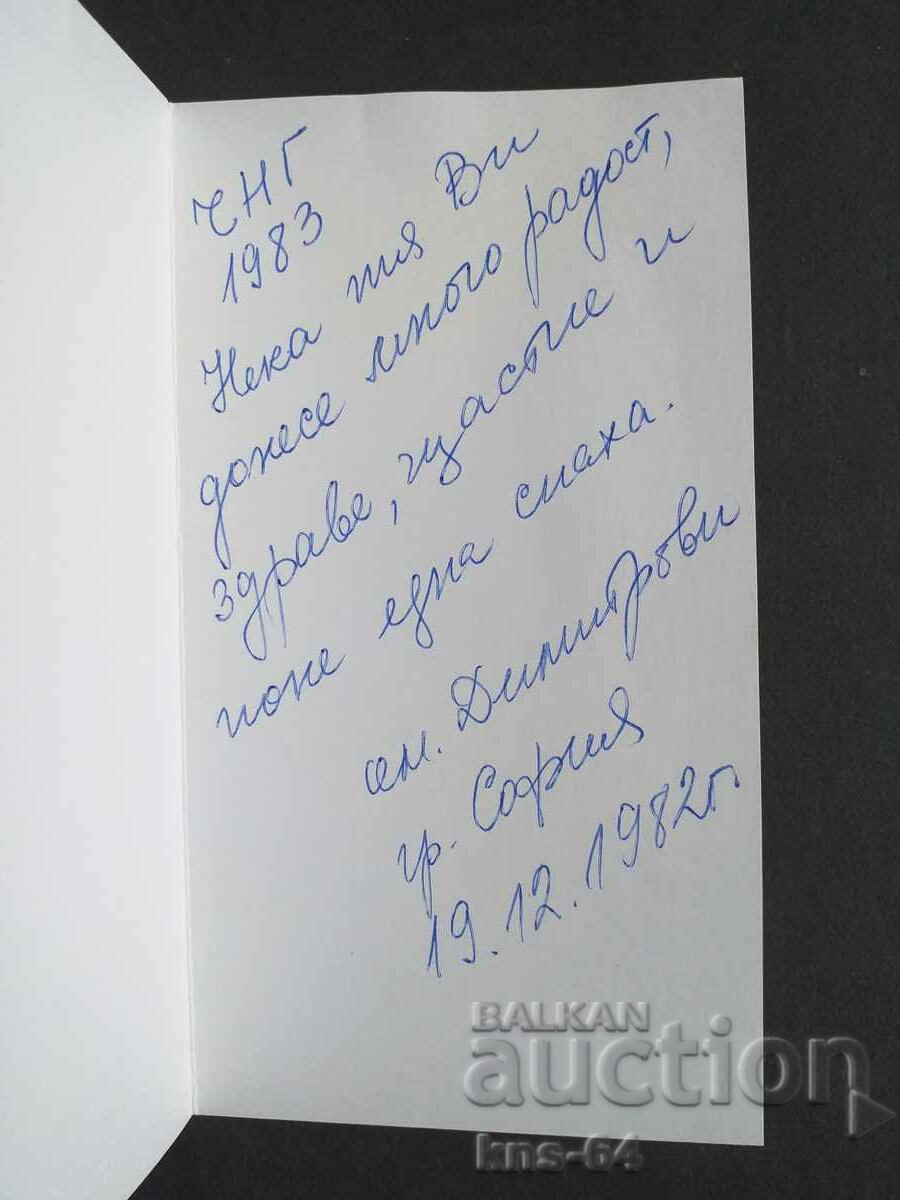 ЧНГ
1983
Нека тя Ви
донесе много радост,
здраве, щастие и
поне една снаха.
сем. Димитрови
гр. София
19.12.1982г.
BALKAN
auction
kns-64